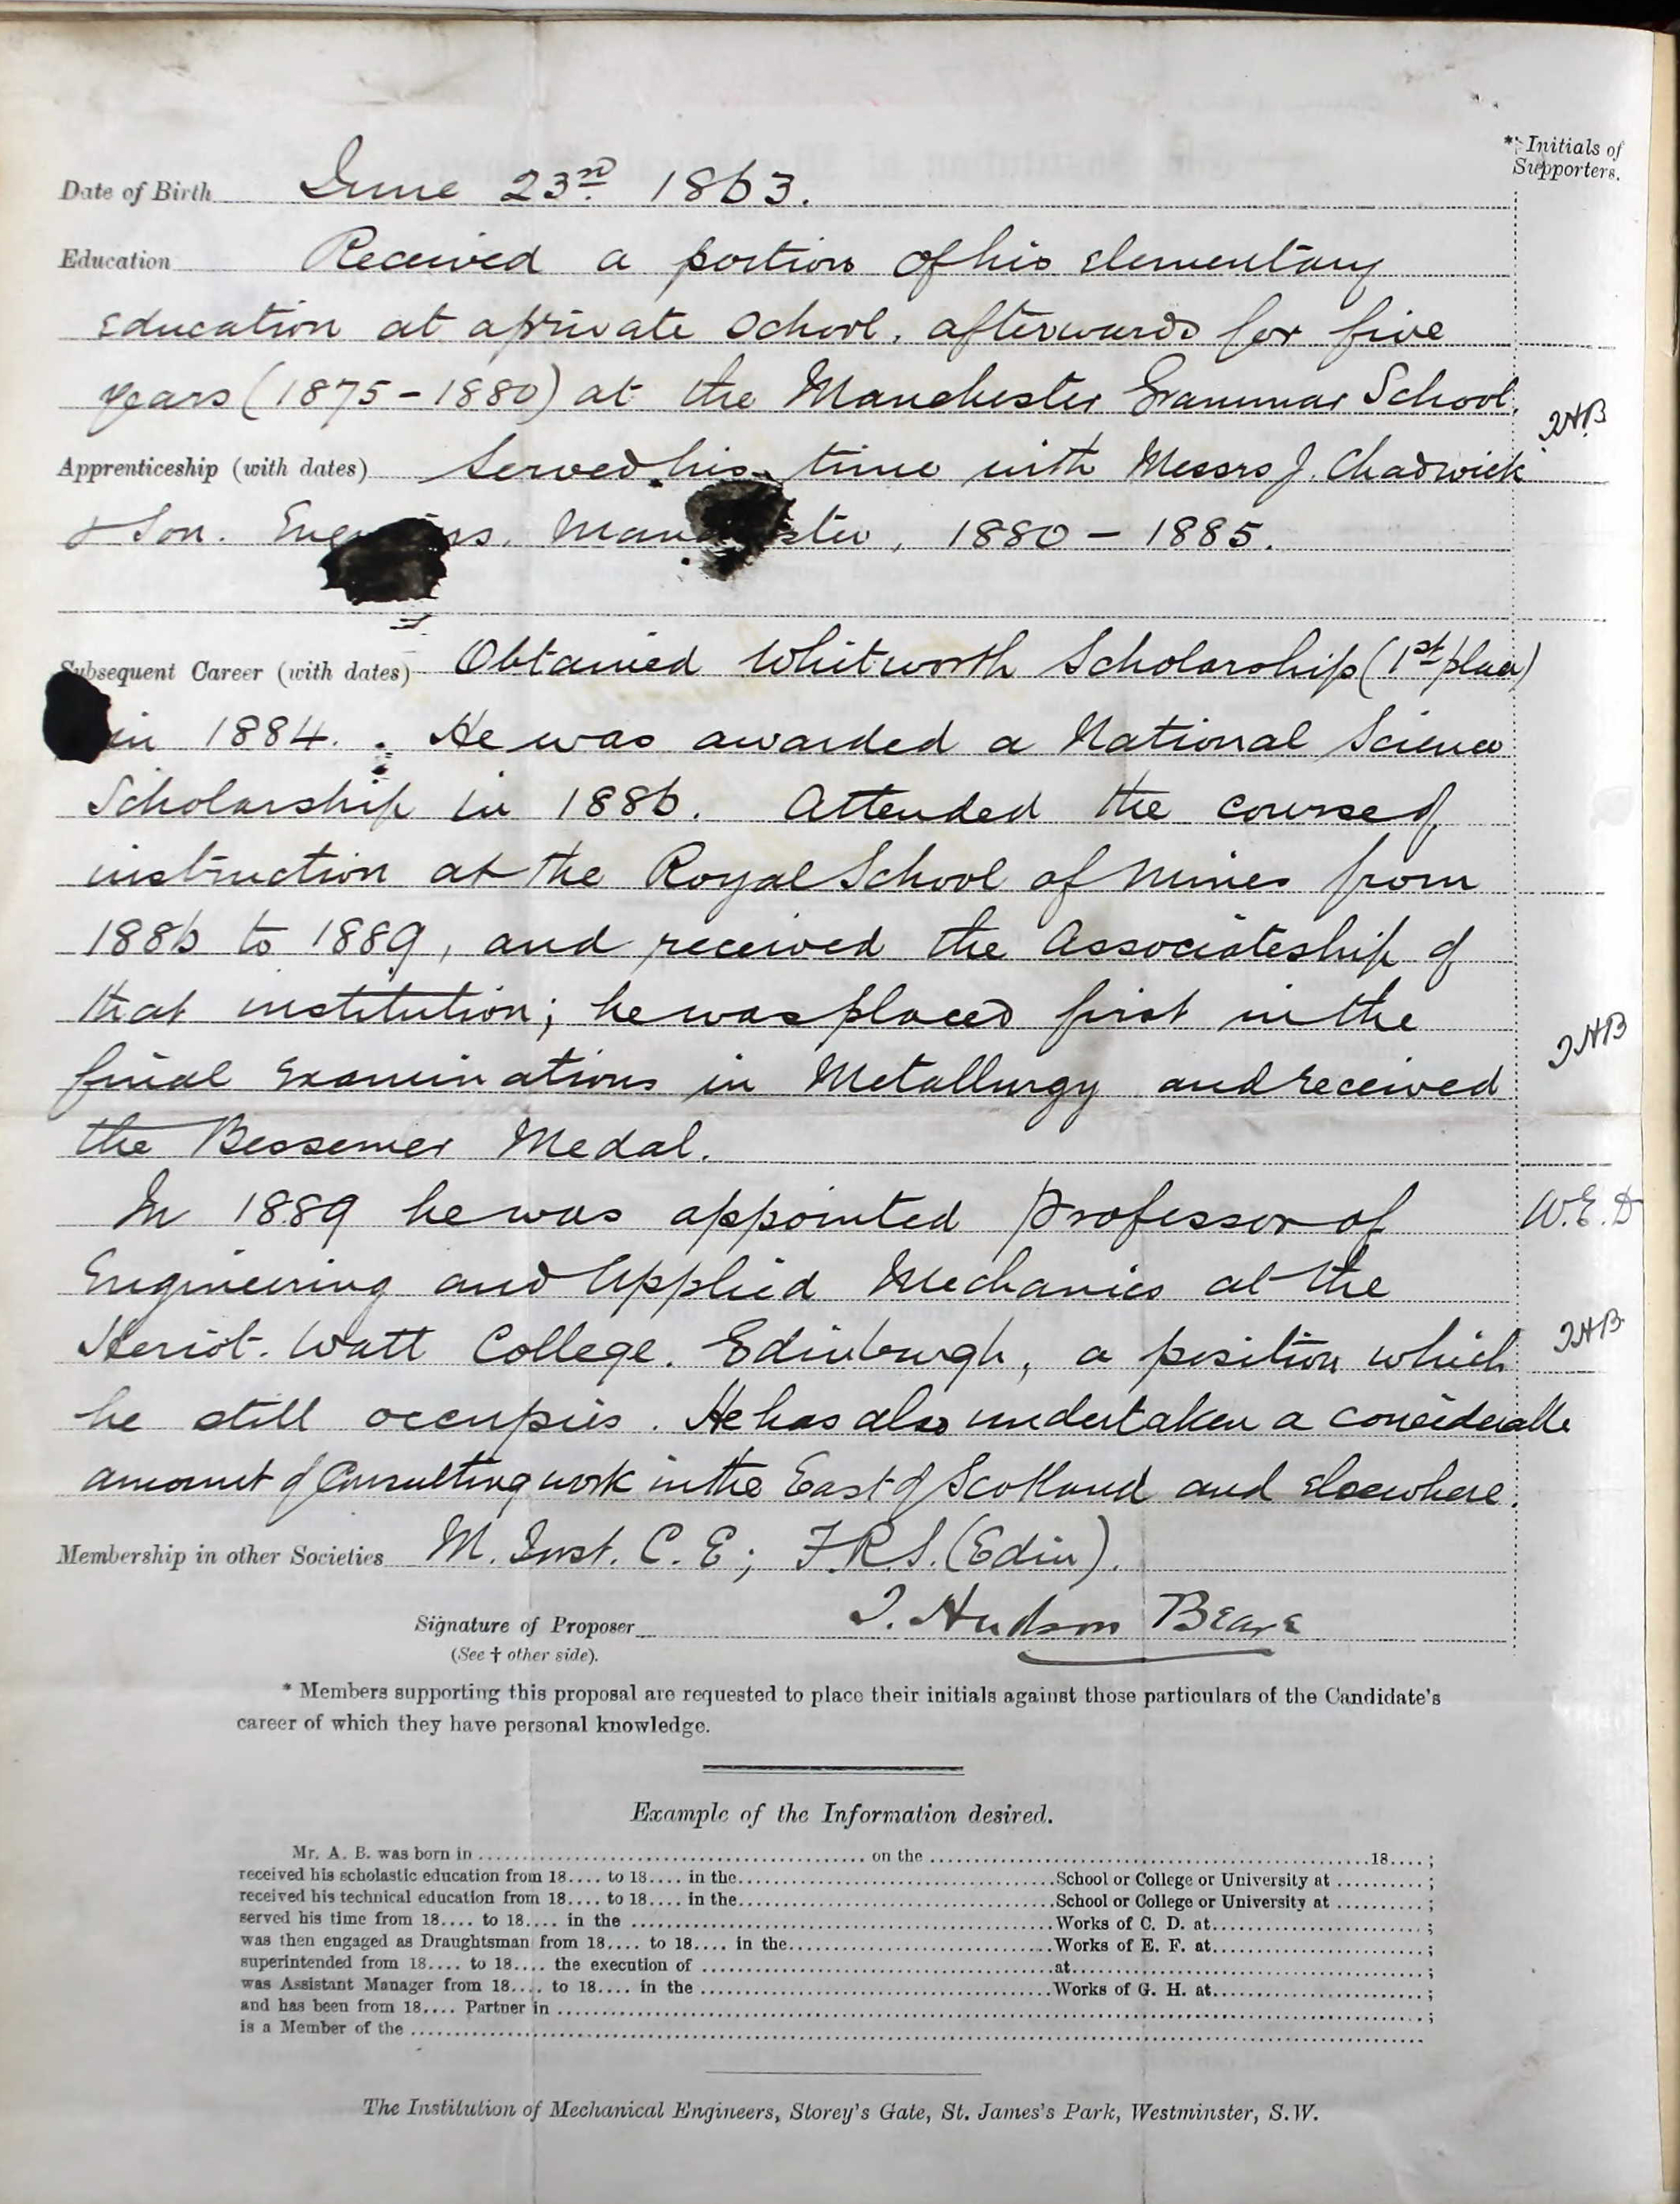 * Initials of
Supporters.
Date of Birth June 23rd 1863.
Education Received a portion of his elementary
education at a private school, afterwards for five
years (1875 - 1880) at the Manchester Grammar School.
THB
Apprenticeship (with dates) Served his time with Messrs J. Chadwick
& Son. Engineers, Manchester, 1880 - 1885.
Subsequent Career (with dates) Obtained Whitworth Scholarship (1st place)
in 1884. He was awarded a National Science
Scholarship in 1886. Attended the course of
instruction at the Royal School of Mines from
1886 to 1889, and received the Associateship of
that institution; he was placed first in the
THB
final examinations in Metallurgy and received
the Bessemer Medal.
In 1889 he was appointed Professor of W.E.D
Engineering and Applied Mechanics at the
Heriot-Watt College, Edinburgh, a position which THB
he still occupies. He has also undertaken a considerable
amount of consulting work in the East of Scotland and elsewhere.
Membership in other Societies M. Inst. C. E; F.R.S. (Edin).
Signature of Proposer T. Hudson Beare
(See † other side).
* Members supporting this proposal are requested to place their initials against those particulars of the Candidate's
career of which they have personal knowledge.
Example of the Information desired.
Mr. A. B. was born in .......... on the .......... 18....;
received his scholastic education from 18.... to 18.... in the .......... School or College or University at ..........;
received his technical education from 18.... to 18.... in the .......... School or College or University at ..........;
served his time from 18.... to 18.... in the .......... Works of C. D. at..........;
was then engaged as Draughtsman from 18.... to 18.... in the.......... Works of E. F. at..........;
superintended from 18.... to 18.... the execution of .......... at..........;
was Assistant Manager from 18.... to 18.... in the .......... Works of G. H. at..........;
and has been from 18.... Partner in ..........;
is a Member of the ..........
The Institution of Mechanical Engineers, Storey's Gate, St. James's Park, Westminster, S.W.